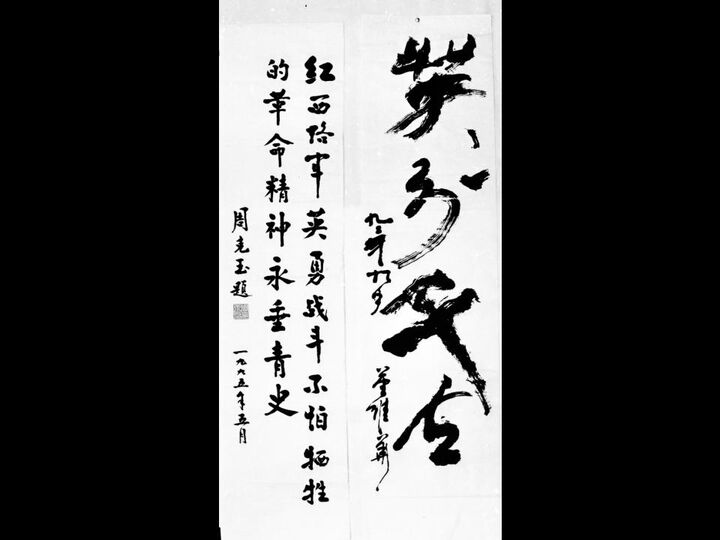 英烈千古
九三年九月
红西路军英勇战斗不怕牺牲
的革命精神永垂青史
周克玉题
一九九五年五月